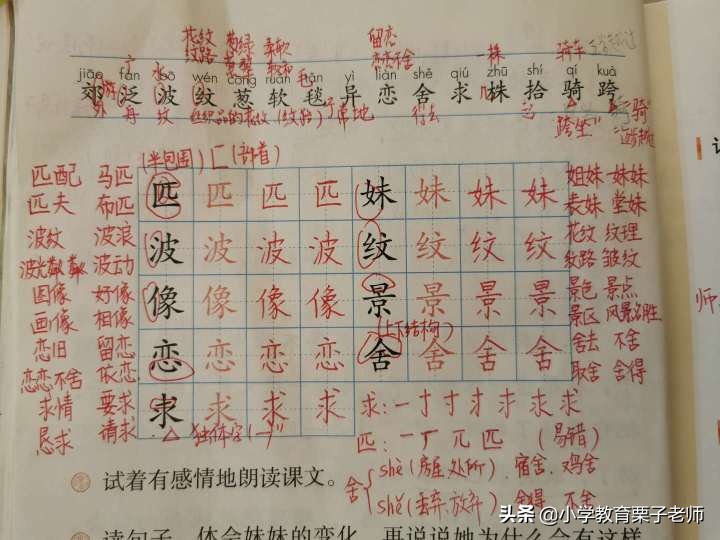 花纹 葱绿 柔软 留恋
纹路 恋恋不舍 一株 骑车
jiāo fàn bō wén cōng ruǎn tǎn yì liàn shě qiú zhū shí qí kuà
郊 泛 波 纹 葱 软 毯 异 恋 舍 求 株 拾 骑 跨
(半包围) 匚 (部首)
匹配 马匹 匹 匹 匹 匹 妹 妹 妹 妹 姐妹 妹妹
匹夫 布匹 表妹 堂妹
波纹 波浪 波 波 波 波 纹 纹 纹 纹 花纹 纹理
波光粼粼 波动 纹路 皱纹
图像 好像 像 像 像 像 景 景 景 景 景色 景点
画像 相像 (上下结构) 景区 风景名胜
恋旧 留恋 恋 恋 恋 恋 舍 舍 舍 舍 舍去 不舍
恋恋不舍 依恋 取舍 舍得
求情 要求 求 求 求 求 求:一 十
恳求 请求 独体字 匹:一 兀 匹 (易错)
试着有感情地朗读课文。
舍 shè(房屋.处所) 宿舍 鸡舍
shě(丢弃.放弃) 舍得 不舍
读句子,体会妹妹的变化,再说说她为什么会有这样
头条 @小学教育栗子老师